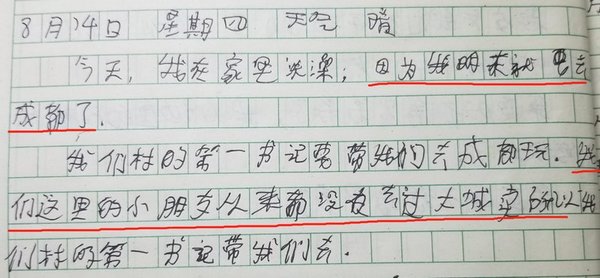 8月14日 星期四 天气 晴
今天,我在家里洗澡,因为我明天就要去
成都了.
我们村的第一书记要带我们去成都玩.我
们这里的小朋友从来都没有去过大城里所以我
们村的第一书记带我们去.